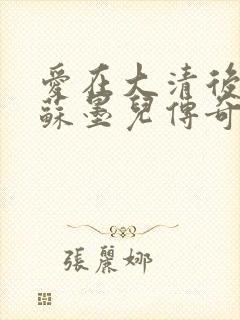 愛在大清後
蘇墨兒傳奇
張麗娜